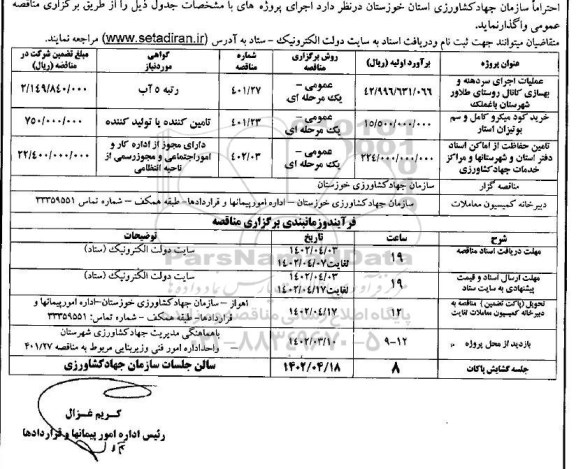 احتراماً سازمان جهادکشاورزی استان خوزستان درنظر دارد اجرای پروژه های با مشخصات جدول ذیل را از طریق برگزاری مناقصه
عمومی واگذارنماید.
متقاضیان میتوانند جهت ثبت نام ودریافت اسناد به سایت دولت الکترونیک - ستاد به آدرس (www.setadiran.ir) مراجعه نمایند.
عنوان پروژه | برآورد اولیه (ریال) | روش برگزاری مناقصه | شماره مناقصه | گواهی موردنیاز | مبلغ تضمین شرکت در مناقصه (ریال)
عملیات اجرای سردهنه و بهسازی کانال روستای طلاور شهرستان باغملک | ۴۲/۹۹۶/۶۳۱/۰۶۶ | عمومی – یک مرحله ای | ۴۰۱/۲۷ | رتبه ۵ آب | ۲/۱۴۹/۸۴۰/۰۰۰
خرید کود میکرو کامل و سم بوتیزان استار | ۱۵/۵۰۰/۰۰۰/۰۰۰ | عمومی – یک مرحله ای | ۴۰۱/۲۳ | تامین کننده یا تولید کننده | ۷۵۰/۰۰۰/۰۰۰
تامین حفاظت از اماکن اسناد دفتر استان و شهرستانها و مراکز خدمات جهادکشاورزی | ۲۲۴/۰۰۰/۰۰۰/۰۰۰ | عمومی – یک مرحله ای | ۴۰۲/۰۳ | دارای مجوز از اداره کار و اموراجتماعی و مجوزرسمی از ناحیه انتظامی | ۲۲/۴۰۰/۰۰۰/۰۰۰
مناقصه گزار | سازمان جهادکشاورزی خوزستان
دبیرخانه کمیسیون معاملات | سازمان جهادکشاورزی خوزستان – اداره امورپیمانها و قراردادها- طبقه همکف – شماره تماس ۳۳۳۵۹۵۵۱
فرآیندوزمانبندی برگزاری مناقصه
شرح | ساعت | تاریخ | توضیحات
مهلت دریافت اسناد مناقصه | ۱۹ | ۱۴۰۲/۰۴/۰۳ لغایت ۱۴۰۲/۰۴/۰۷ | سایت دولت الکترونیک (ستاد)
مهلت ارسال اسناد و قیمت پیشنهادی به سایت ستاد | ۱۹ | ۱۴۰۲/۰۴/۰۳ لغایت ۱۴۰۲/۰۴/۱۷ | سایت دولت الکترونیک (ستاد)
تحویل (پاکت تضمین) مناقصه به دبیرخانه کمیسیون معاملات لغایت | ۱۲ | ۱۴۰۲/۰۴/۱۷ | اهواز – سازمان جهادکشاورزی خوزستان-اداره امورپیمانها و قراردادها- طبقه همکف – شماره تماس: ۳۳۳۵۹۵۵۱
بازدید از محل پروژه | ۹-۱۲ | ۱۴۰۲/۰۳/۱۰ | باهماهنگی مدیریت جهادکشاورزی شهرستان واحداداره امور فنی وزیربنایی مربوط به مناقصه ۴۰۱/۲۷
جلسه گشایش پاکات | ۸ | ۱۴۰۲/۰۴/۱۸ | سالن جلسات سازمان جهادکشاورزی
کریم غزال
رئیس اداره امور پیمانها و قراردادها